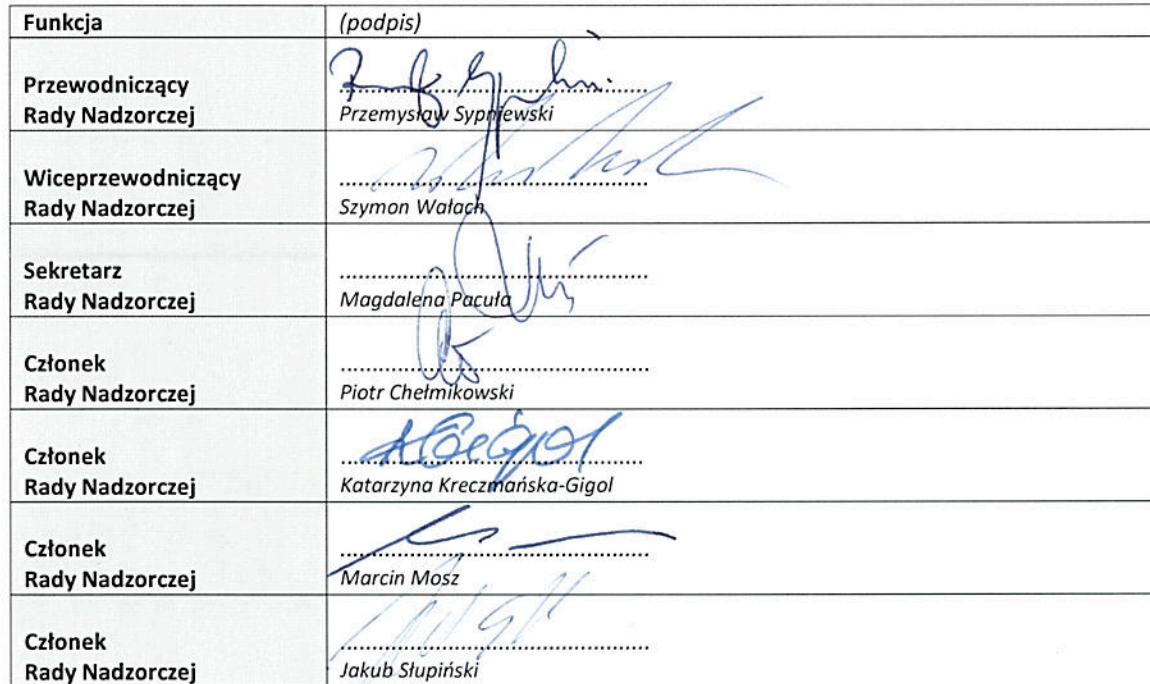 Funkcja (podpis)
Przewodniczący
Rady Nadzorczej
....................................................
Przemysław Sypniewski
Wiceprzewodniczący
Rady Nadzorczej
....................................................
Szymon Wałach
Sekretarz
Rady Nadzorczej
....................................................
Magdalena Pacuła
Członek
Rady Nadzorczej
....................................................
Piotr Chełmikowski
Członek
Rady Nadzorczej
....................................................
Katarzyna Kreczmańska-Gigol
Członek
Rady Nadzorczej
....................................................
Marcin Mosz
Członek
Rady Nadzorczej
....................................................
Jakub Słupiński